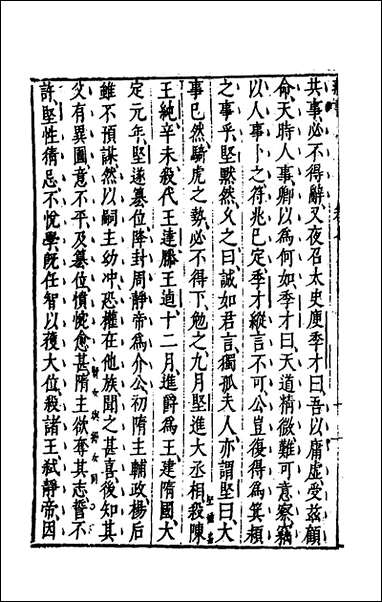 共事必不得辭又夜召太史庾季才曰吾以庸虛受茲顧
命天時人事卿以為何如季才曰天道精微難可意察竊
以人事卜之符兆已定季才縱言不可公豈復得為箕潁
之事乎堅默然久之曰誠如君言獨孤夫人亦謂堅曰大
事已然騎虎之勢必不得下勉之九月堅進大丞相殺陳
王純辛未殺代王達滕王逌十二月進爵為王建隋國大
定元年堅遂篡位降封周靜帝為介公初隋主輔政楊后
雖不預謀然以嗣主幼冲恐權在他族聞之甚喜後知其
父有異圖意不平及篡位憤惋愈甚隋主欲奪其志誓不
許堅性猜忌不悅學既任智以獲大位殺諸王弒靜帝因